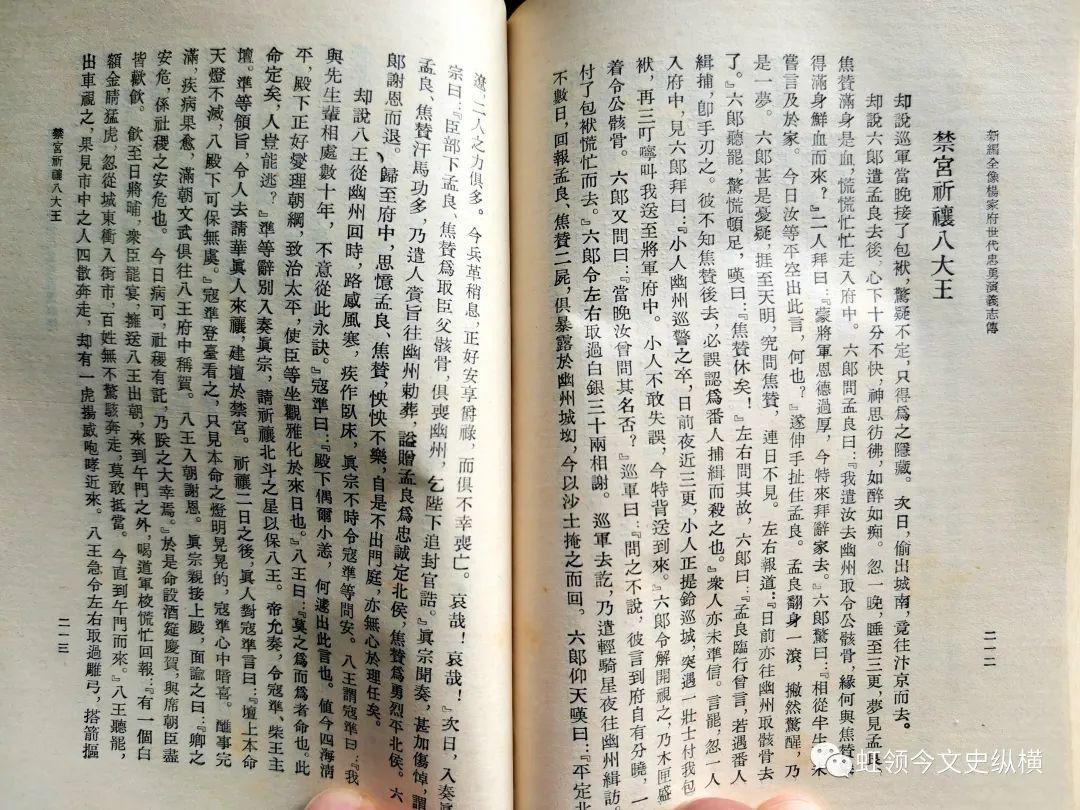 新編全像楊家府世代忠勇演義志傳
二一二
禁宮祈禳八大王
却說巡軍當晚接了包袱，驚疑不定，只得爲之隱藏。次日，偷出城南，竟往汴京而去。
却說六郎遣孟良去後，心下十分不快，神思彷彿，如醉如痴。忽一晚，睡至三更，夢見孟良
焦贊滿身是血，慌慌忙忙走入府中。六郎問孟良曰：『我遣汝去幽州取令公骸骨，緣何與焦贊
得滿身鮮血而來？』二人拜曰：『蒙將軍恩德過厚，今特來拜辭家去。』六郎驚曰：『相從半生
嘗言及於家。今日汝等平空出此言，何也？』遂伸手扯住孟良。孟良翻身一滾，撇然驚醒，乃
是一夢。六郎甚是憂疑，捱至天明，究問焦贊，連日不見。左右報道：『日前亦往幽州取骸骨去
了。』六郎聽罷，驚慌頓足，嘆曰：『焦贊休矣！』左右問其故，六郎曰：『孟良臨行曾言，若遇番人
緝捕，卽手刃之。彼不知焦贊後去，必誤認爲番人捕緝而殺之也。』衆人亦未準信。言罷，忽一人
入府中，見六郎拜曰：『小人幽州巡警之卒，日前夜近三更，小人正提鈴巡城，突遇一壯士付我包
袱，再三叮嚀叫我送至將軍府中。小人不敢失誤，今特背送到來。』六郎令解開視之，乃木匣盛
着令公骸骨。六郎又問曰：『當晚汝曾問其名否？』巡軍曰：『問之不說，彼言到府自有分曉，一
付了包袱慌忙而去。』六郎令左右取過白銀三十兩相謝。巡軍去訖，乃遣輕騎星夜往幽州緝訪。
不數日，回報孟良、焦贊二屍，俱暴露於幽州城坳，今以沙土掩之而回。六郎仰天嘆曰：『平定北
遼，二人之力俱多。今兵革稍息，正好安享爵祿，而俱不幸喪亡。哀哉！哀哉！』次日，入奏眞
宗曰：『臣部下孟良、焦贊爲取臣父骸骨，俱喪幽州，乞陛下追封官誥。』眞宗聞奏，甚加傷悼，謂
孟良、焦贊汗馬功多，乃遣人賫旨往幽州勅葬，謚贈孟良爲忠誠定北侯，焦贊爲勇烈平北侯。六
郎謝恩而退。歸至府中，思憶孟良、焦贊，怏怏不樂，自是不出門庭，亦無心於理任矣。
却說八王從幽州回時，路感風寒，疾作臥床，眞宗不時令寇準等問安。八王謂寇準曰：『我
與先生輩相處數十年，不意從此永訣。』寇準曰：『殿下偶爾小恙，何遽出此言也。値今四海淸
平，殿下正好燮理朝綱，致治太平，使臣等坐觀雅化於來日也。』八王曰：『莫之爲而爲者命也。此
命定矣，人豈能逃？』準等辭別入奏眞宗，請祈禳北斗之星以保八王。帝允奏，令寇準、柴王主
壇。準等領旨，令人去請華眞人來禳，建壇於禁宮。祈禳二日之後，眞人對寇準言曰：『壇上本命
天燈不滅，八殿下可保無虞。』寇準登臺看之，只見本命之燈明晃晃的，寇準心中暗喜。醮事完
滿，疾病果愈，滿朝文武俱往八王府中稱賀。八王入朝謝恩。眞宗親接上殿，面諭之曰：『卿之
安危，係社稷之安危也。今日病可，社稷有託，乃朕之大幸焉。』於是命設酒筵慶賀，與席朝臣盡
皆歡飲。飲至日將晡，衆臣罷宴，擁送八王出朝，來到午門之外，喝道軍校慌忙回報：『有一個白
額金睛猛虎，忽從城東衝入街市，百姓無不驚駭奔走，莫敢抵當。今直到午門而來。』八王聽罷，
出車視之，果見市中之人四散奔走，却有一虎揚威咆哮近來。八王急令左右取過雕弓，搭箭摳
禁宮祈禳八大王
二一三
虹领今文史纵横